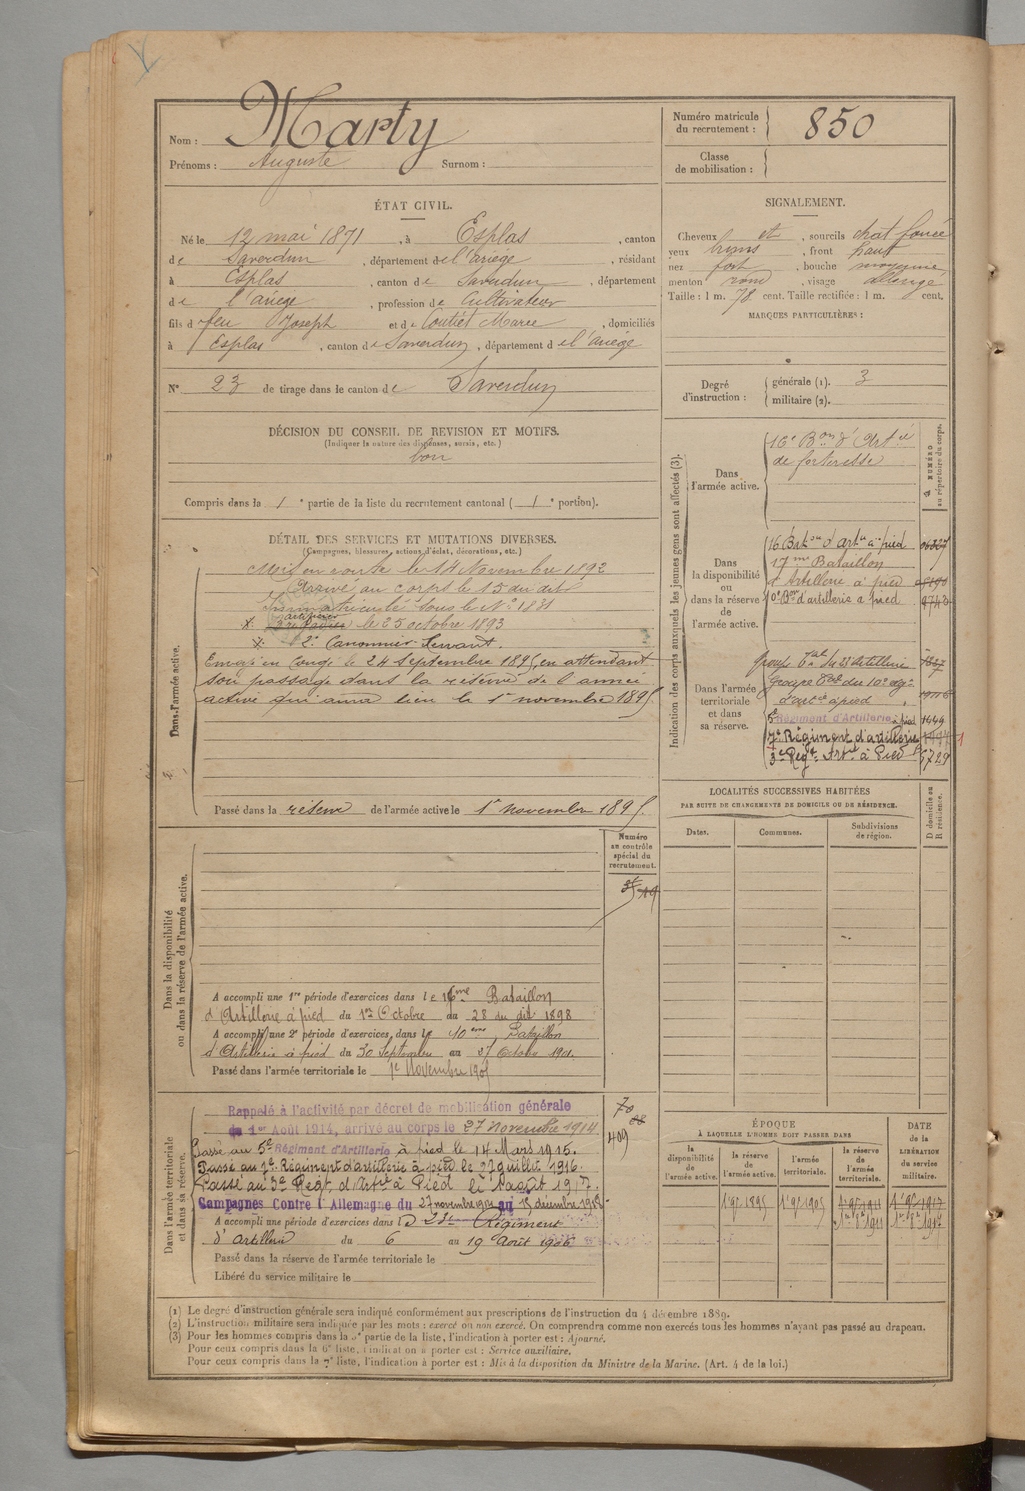 Nom : Marty
Prénoms : Auguste Surnom :
Numéro matricule du recrutement : 850
Classe de mobilisation :
ÉTAT CIVIL.
Né le 12 mai 1871, à Esplas, canton
de Saverdun, département de l'Ariège, résidant
à Esplas, canton de Saverdun, département
de l'ariège, profession de Cultivateur
fils de feu Joseph et de Coutiet Marie, domiciliés
à Esplas, canton de Saverdun, département de l'ariège
N° 23 de tirage dans le canton de Saverdun
SIGNALEMENT.
Cheveux et, sourcils chat. foncé
yeux bruns, front haut
nez fort, bouche moyenne,
menton rond, visage allongé
Taille : 1 m. 78 cent. Taille rectifiée : 1 m. cent.
MARQUES PARTICULIÈRES :
Degré d'instruction : générale (1). 3
militaire (2).
DÉCISION DU CONSEIL DE REVISION ET MOTIFS.
(Indiquer la nature des dispenses, sursis, etc.)
bon
Compris dans la 1e partie de la liste du recrutement cantonal ( 1e portion).
DÉTAIL DES SERVICES ET MUTATIONS DIVERSES.
(Campagnes, blessures, actions d'éclat, décorations, etc.)
Dans l'armée active.
Mis en route le 14 Novembre 1892
Arrivé au corps le 15 du dit
Immatriculé sous le N° 1831
artificier
le 25 octobre 1893
2e Canonnier Servant.
Envoyé en congé le 24 septembre 1895, en attendant
son passage dans la réserve de l'armée
active qui aura lieu le 1r novembre 1895
Passé dans la réserve de l'armée active le 1r novembre 1895
Indication des corps auxquels les jeunes gens sont affectés (3).
NUMÉRO au répertoire du corps.
Dans l'armée active.
16e Bon d'Artie
de forteresse
Dans la disponibilité ou dans la réserve de l'armée active.
16 Baton d'artie à pied
17me Bataillon
d'Artillerie à pied
10e Bon d'artillerie à pied
Dans l'armée territoriale et dans sa réserve.
groupe Tal du 23e artillerie
Groupe Tal du 10e régt
d'artie à pied
5e Régiment d'Artillerie à pied 1449
7e Régiment d'artillerie
3e Régt Artie à Pied 5729
LOCALITÉS SUCCESSIVES HABITÉES
PAR SUITE DE CHANGEMENTS DE DOMICILE OU DE RÉSIDENCE.
D domicile ou R résidence.
Dates. Communes. Subdivisions de région.
Numéro au contrôle spécial du recrutement.
Dans la disponibilité ou dans la réserve de l'armée active.
A accompli une 1re période d'exercices dans le 16me Bataillon
d'Artillerie à pied du 1er Octobre au 28 du dit 1898
A accompli une 2e période d'exercices, dans le 10eme Bataillon
d'Artillerie à pied du 30 septembre au 27 Octobre 1901.
Passé dans l'armée territoriale le 1r Novembre 1905
Dans l'armée territoriale et dans sa réserve.
Rappelé à l'activité par décret de mobilisation générale
du 1er Août 1914, arrivé au corps le 27 Novembre 1914
Passé au 5e Régiment d'Artillerie à pied le 14 Mars 1915.
Passé au 7e Régiment d'artillerie à pied le 29 Juillet 1916.
Passé au 3e Régt d'Artie à Pied le 1 août 1917.
Campagnes Contre l'Allemagne du 27 novembre 1914 au décembre 1918
A accompli une période d'exercices dans le 23e Régiment
d'artillerie du 6 au 19 Août 1906
Passé dans la réserve de l'armée territoriale le
Libéré du service militaire le
70
409
ÉPOQUE
À LAQUELLE L'HOMME DOIT PASSER DANS
la disponibilité de l'armée active. la réserve de l'armée active. l'armée territoriale. la réserve de l'armée territoriale.
DATE de la LIBÉRATION du service militaire.
1r 9bre 1895 1r 9bre 1905 1r 9bre 1911 1r 9bre 1917
1er 8bre 1911 1er 8bre 1917
(1) Le degré d'instruction générale sera indiqué conformément aux prescriptions de l'instruction du 4 décembre 1889.
(2) L'instruction militaire sera indiquée par les mots : exercé ou non exercé. On comprendra comme non exercés tous les hommes n'ayant pas passé au drapeau.
(3) Pour les hommes compris dans la 5e partie de la liste, l'indication à porter est : Ajourné.
Pour ceux compris dans la 6e liste, l'indication à porter est : Service auxiliaire.
Pour ceux compris dans la 7e liste, l'indication à porter est : Mis à la disposition du Ministre de la Marine. (Art. 4 de la loi.)